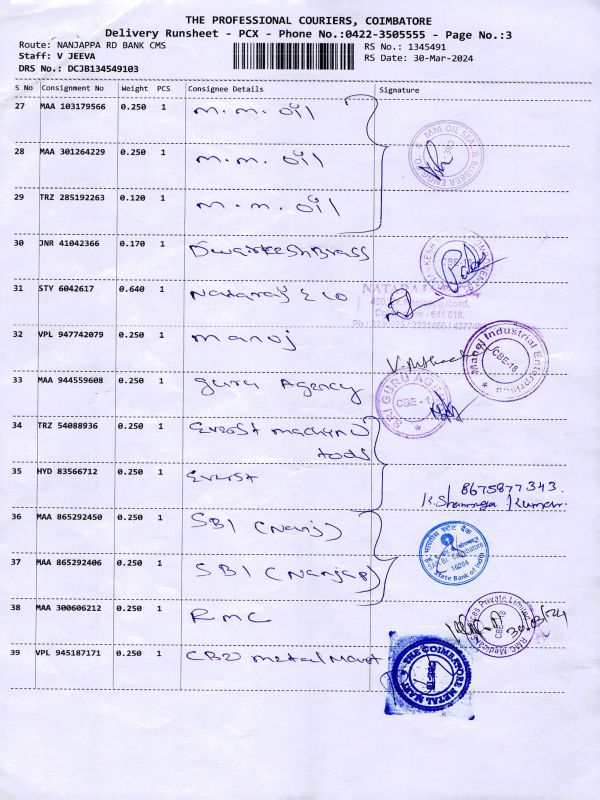 THE PROFESSIONAL COURIERS, COIMBATORE
Delivery Runsheet - PCX - Phone No.:0422-3505555 - Page No.:3
Route: NANJAPPA RD BANK CMS
RS No.: 1345491
Staff: V JEEVA
RS Date: 30-Mar-2024
DRS No.: DCJB134549103
S No Consignment No Weight PCS Consignee Details Signature
27 MAA 103179566 0.250 1 m.m.oil
MM OIL SEAL & RUBBER ENGG. CO.
28 MAA 301264229 0.250 1 m.m.oil
29 TRZ 285192263 0.120 1 m.m.oil
30 JNR 41042366 0.170 1 Dwarkesh Brass
CBE-18
31 STY 6042617 0.640 1 Nataraj & co
NATARAJ
Road,
641 018.
32 VPL 947742079 0.250 1 manoj
Manoj Industrial Enterprises
CBE-18
33 MAA 944559608 0.250 1 guru Agency
SRI GURU AGE
CBE-1
34 TRZ 54088936 0.250 1 Everst machin
tools
35 HYD 83566712 0.250 1 Everst
8675877343.
K.Shanmuga Kumar
36 MAA 865292450 0.250 1 SBI (Nanj)
भारतीय स्टेट बैंक
State Bank of India
37 MAA 865292406 0.250 1 SBI (Nanjap)
38 MAA 300606212 0.250 1 RMC
RMC Medical Private Limited
CBE-18
30/03/24
39 VPL 945187171 0.250 1 CBE metal Mart
THE COIMBATORE METAL MART
CBE-18